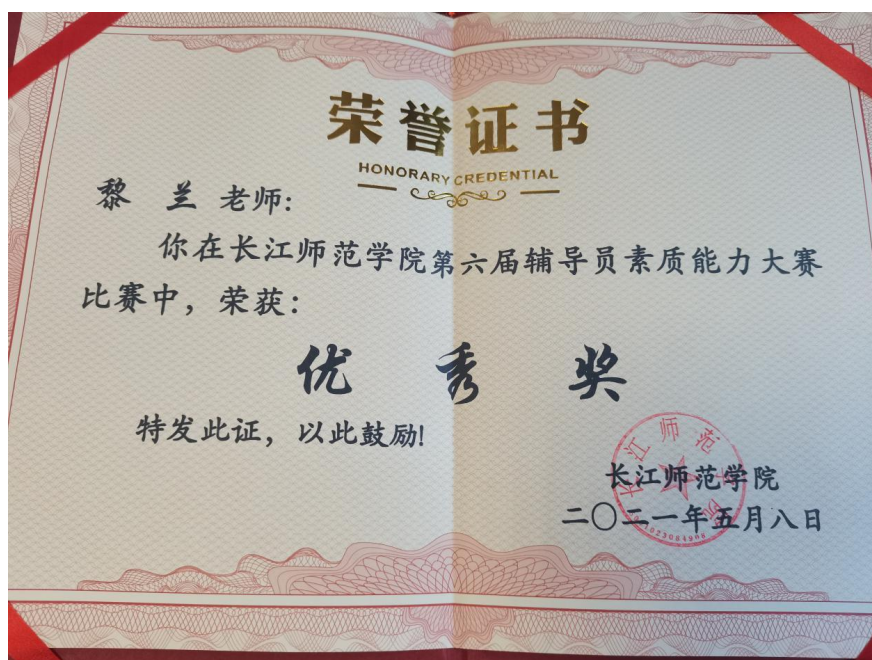 荣誉证书
HONORARY CREDENTIAL
黎 兰 老师:
你在长江师范学院第六届辅导员素质能力大赛
比赛中，荣获：
优 秀 奖
特发此证，以此鼓励!
长江师范学院
长江师范学院
二〇二一年五月八日